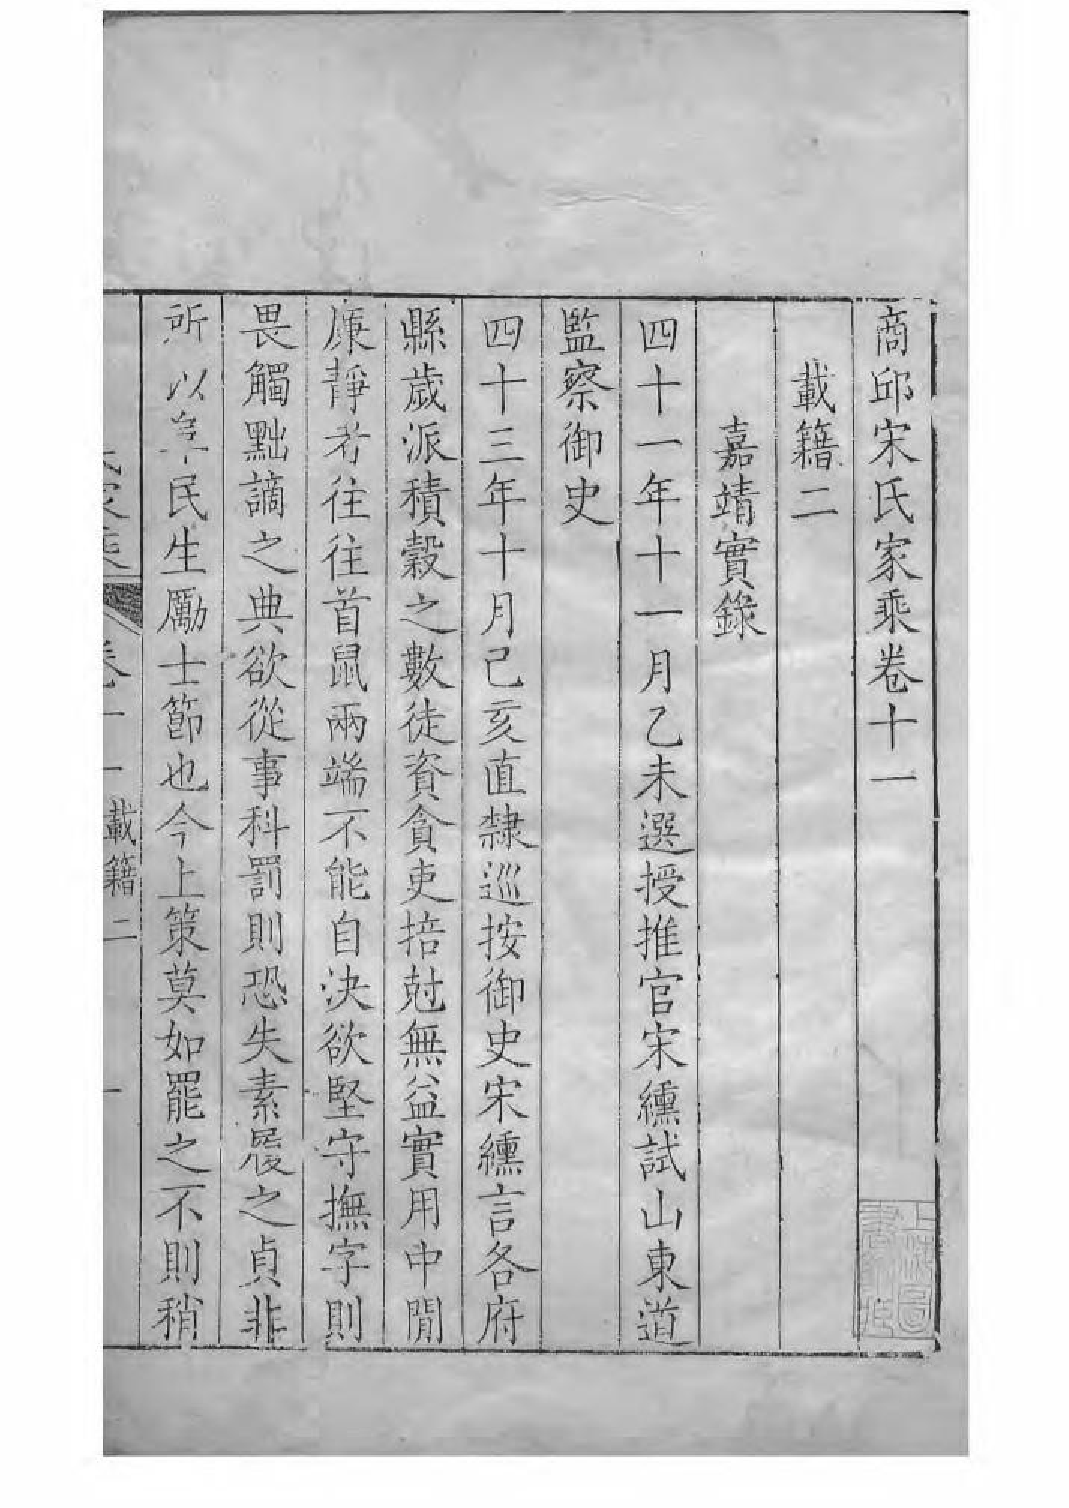 商邱宋氏家乘卷十一
載籍二
嘉靖實錄
四十一年十一月乙未選授推官宋纁試山東道
監察御史
四十三年十月己亥直隸巡按御史宋纁言各府
縣歲派積穀之數徒資貪吏掊尅無益實用中閒
廉靜者往往首鼠兩端不能自決欲堅守撫字則
畏觸黜謫之典欲從事科罰則恐失素履之貞非
所以

民生厲士節也今上策莫如罷之不則稍
載籍二
一
上海圖書館藏